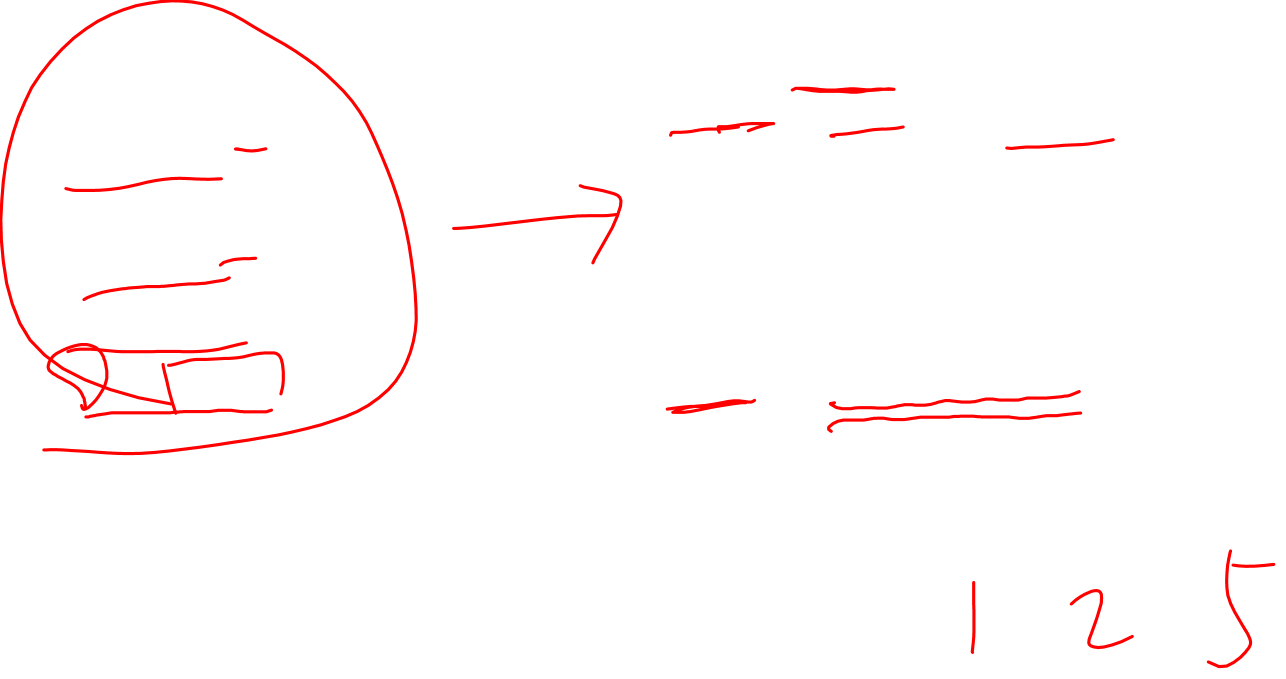 1 2 5